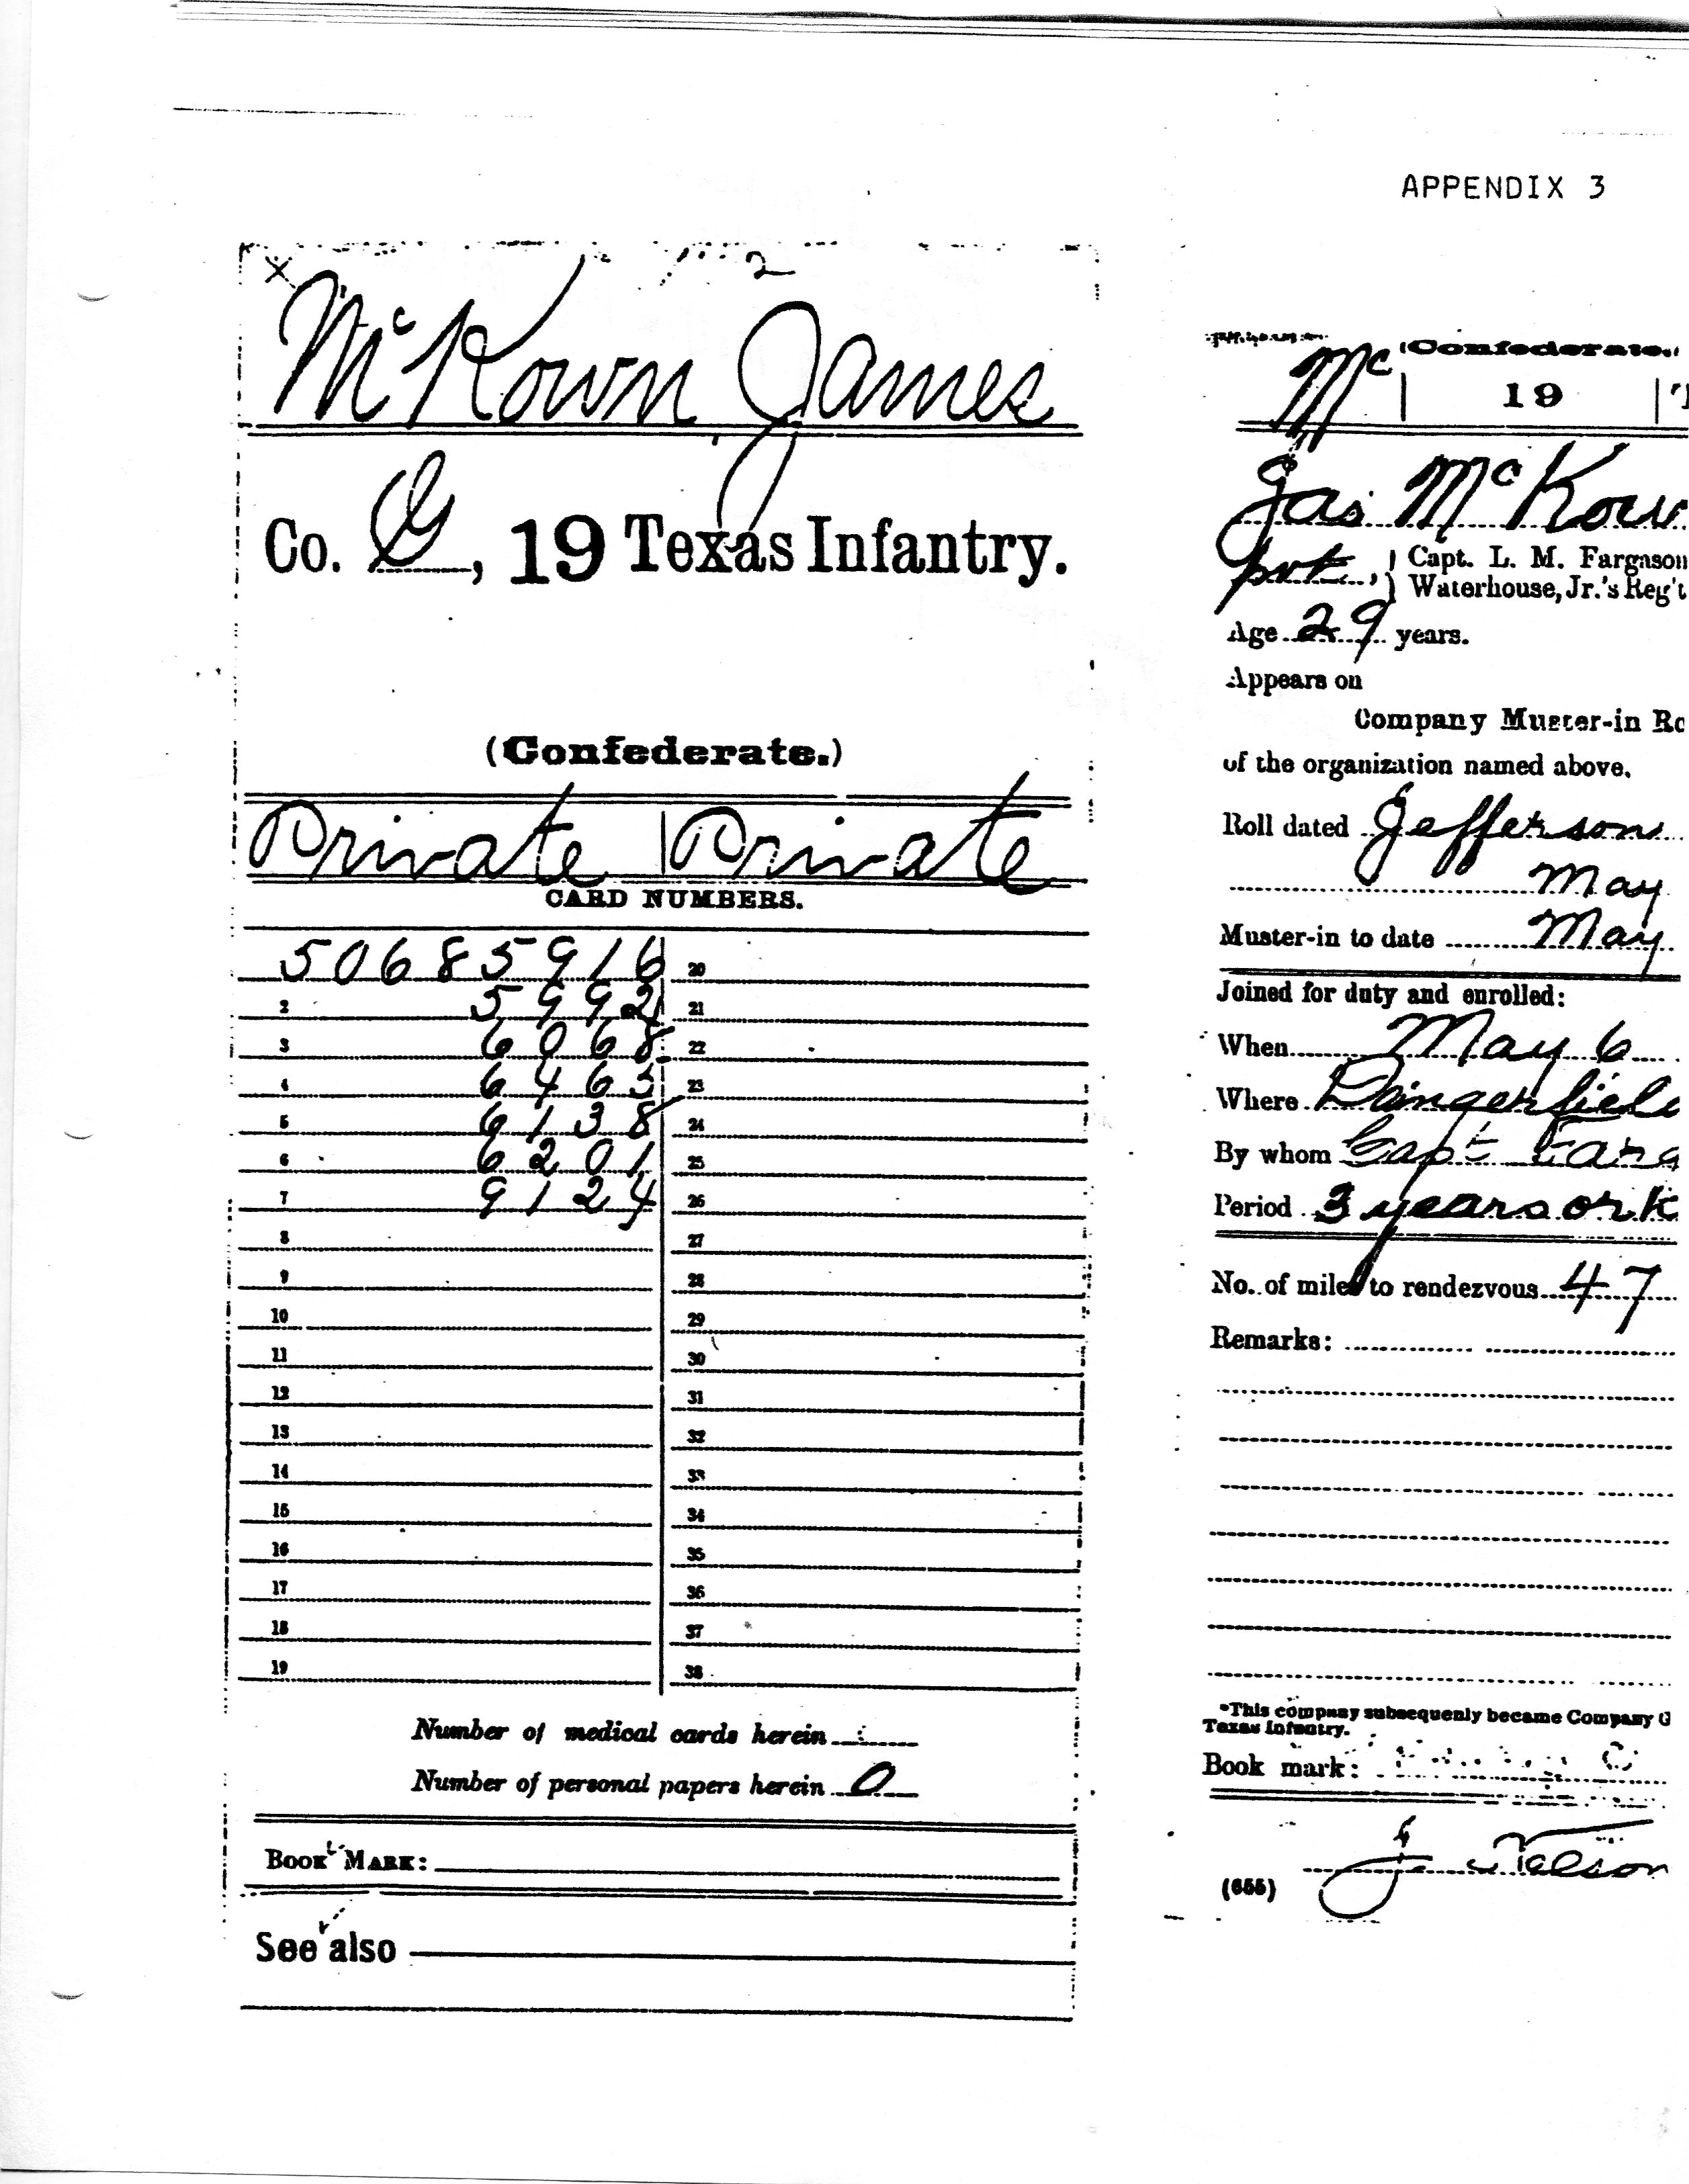 APPENDIX 3
x 2
McKown James
Co. G, 19 Texas Infantry.
(Confederate.)
Private | Private
CARD NUMBERS.
50685916 20
2 5992 21
3 6068 22
4 6463 23
5 6138 24
6 6201 25
7 9124 26
8 27
9 28
10 29
11 30
12 31
13 32
14 33
15 34
16 35
17 36
18 37
19 38
Number of medical cards herein
Number of personal papers herein 0
BOOK MARK:
See also
(Confederate.)
Mc | 19 | T
Jas McKow
pvt, } Capt. L. M. Fargason
Waterhouse, Jr.'s Reg't
Age 29 years.
Appears on
Company Muster-in Ro
of the organization named above.
Roll dated Jefferson
May
Muster-in to date May
Joined for duty and enrolled:
When May 6
Where Daingerfield
By whom Capt Farg
Period 3 years or
No. of miles to rendezvous 47
Remarks:
*This company subsequenly became Company G
Texas Infantry.
Book mark:
(655) J